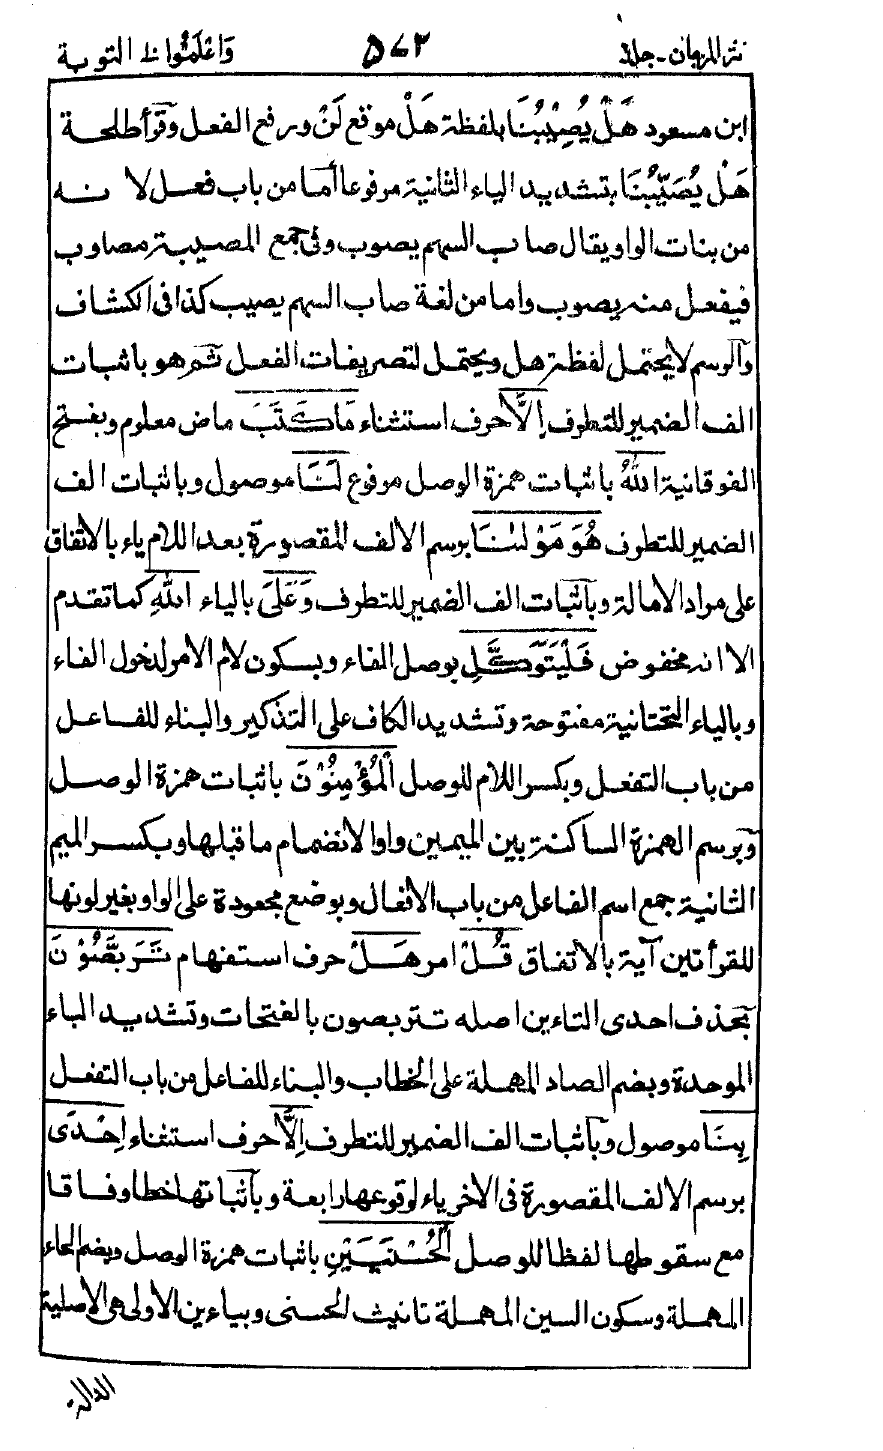 نثر المرجان - جلد ۲ ۵۷۲ وَاعْلَمُوا ۱۰ التوبة
ابن مسعود هَلْ يُصِيْبُنَا بلفظة هَلْ موقع لَنْ ورفع الفعل وقرأ طلحة
هَلْ يُصَيِّبُنَا بتشديد الياء الثانية مرفوعا أما من باب فعل لا نه
من بنات الواو يقال صاب السهم يصوب وفى جمع المصيبة مصاوب
فيفعل منه يصوب واما من لغة صاب السهم يصيب كذا فى الكشاف
والرسم لا يحتمل لفظة هل ويحتمل لتصريفات الفعل ثم هو باثبات
الف الضمير للتطرف إِلَّا حرف استثناء مَا كَتَبَ ماض معلوم وبفتح
الفوقانية اللهُ باثبات همزة الوصل مرفوع لَنَا موصول وباثبات الف
الضمير للتطرف هُوَ مَوْلٰىنَا برسم الالف المقصورة بعد اللام ياء بالاتفاق
على مراد الامالة وباثبات الف الضمير للتطرف وَعَلَى بالياء اللهِ كما تقدم
الا انه مخفوض فَلْيَتَوَكَّلِ بوصل الفاء وبسكون لام الامر لدخول الفاء
وبالياء التحتانية مفتوحة وتشديد الكاف على التذكير والبناء للفاعل
من باب التفعل وبكسر اللام للوصل الْمُؤْمِنُوْنَ باثبات همزة الوصل
وبرسم الهمزة الساكنة بين الميمين واوا لانضمام ما قبلها وبكسر الميم
الثانية جمع اسم الفاعل من باب الافعال وبوضع مجعودة على الواو بغير لونها
للقرأتين آية بالاتفاق قُلْ امر هَلْ حرف استفهام تَرَبَّصُوْنَ
بحذف احدى التاءين اصله تتربصون بالفتحات وتشديد الباء
الموحدة وبضم الصاد المهملة على الخطاب والبناء للفاعل من باب التفعل
بِنَا موصول وباثبات الف الضمير للتطرف اِلَّا حرف استثناء اِحْدَى
برسم الالف المقصورة فى الاخر ياء لوقوعها رابعة وباثباتها خطا وفاقا
مع سقوطها لفظا للوصل الْحُسْنَيَيْنِ باثبات همزة الوصل وبضم الحاء
المهملة وسكون السين المهملة تانيث الحسنى وبياءين الاولى هى الاصلية
الدالة